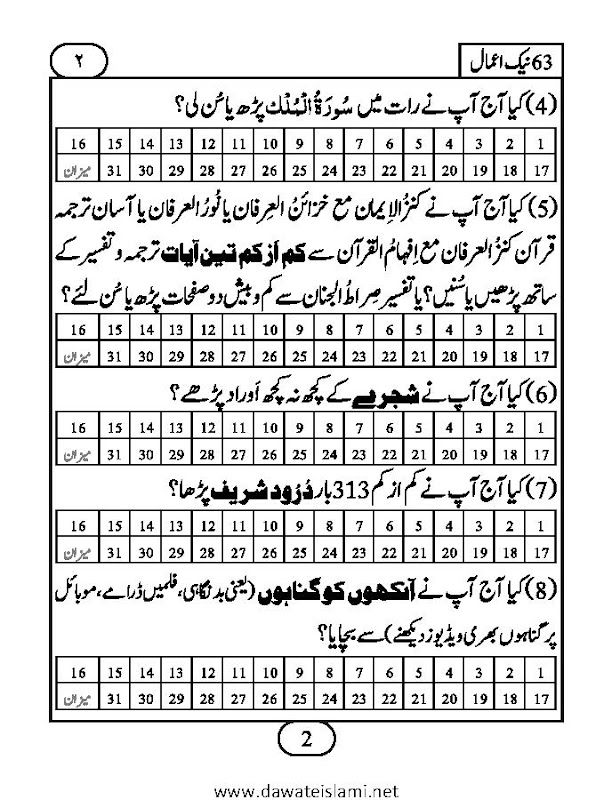 63 نیک اعمال
۲
(4) کیا آج آپ نے رات میں سُورَۃُ الْمُلْک پڑھ یا سُن لی؟
1 2 3 4 5 6 7 8 9 10 11 12 13 14 15 16
17 18 19 20 21 22 23 24 25 26 27 28 29 30 31 میزان
(5) کیا آج آپ نے کنزُ الاِیمان مع خزائنُ العِرفان یا نُورُ العرفان یا آسان ترجمہ
قرآن کنزُ العرفان مع اِفہامُ القرآن سے کم اَز کم تین آیات ترجمہ و تفسیر کے
ساتھ پڑھیں یا سُنیں؟ یا تفسیر صِراطُ الجنان سے کم و بیش دو صفحات پڑھ یا سُن لئے؟
1 2 3 4 5 6 7 8 9 10 11 12 13 14 15 16
17 18 19 20 21 22 23 24 25 26 27 28 29 30 31 میزان
(6) کیا آج آپ نے شجرے کے کچھ نہ کچھ اَوراد پڑھے؟
1 2 3 4 5 6 7 8 9 10 11 12 13 14 15 16
17 18 19 20 21 22 23 24 25 26 27 28 29 30 31 میزان
(7) کیا آج آپ نے کم از کم 313 بار دُرُود شریف پڑھا؟
1 2 3 4 5 6 7 8 9 10 11 12 13 14 15 16
17 18 19 20 21 22 23 24 25 26 27 28 29 30 31 میزان
(8) کیا آج آپ نے آنکھوں کو گناہوں (یعنی بدنگاہی، فلمیں ڈرامے، موبائل
پر گناہوں بھری ویڈیوز دیکھنے) سے بچایا؟
1 2 3 4 5 6 7 8 9 10 11 12 13 14 15 16
17 18 19 20 21 22 23 24 25 26 27 28 29 30 31 میزان
2
www.dawateislami.net